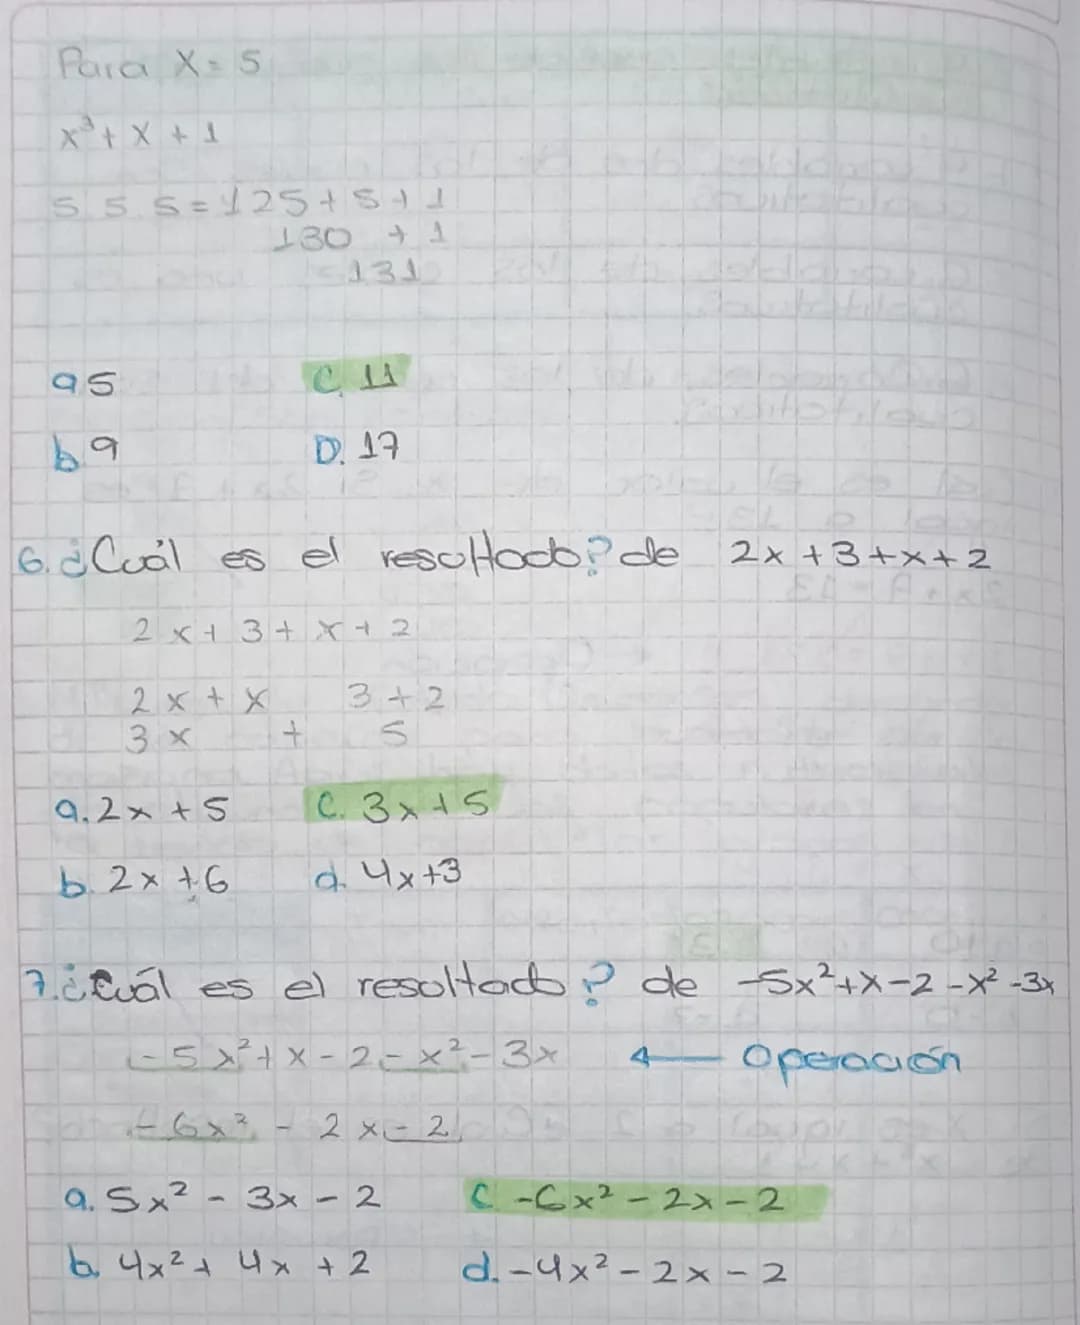 Para X = 5
x³ + x + 1
5 . 5 . 5 = 125 + 5 + 1
130 + 1
131
a 5 C. 11
b 9 D. 17
6. ¿Cuál es el resultado? de 2x + 3 + x + 2
2x + 3 + x + 2
2x + x 3 + 2
3x + 5
a. 2x + 5 C. 3x + 5
b. 2x + 6 d. 4x + 3
7. ¿Cuál es el resultado? de -5x² + x - 2 - x² - 3x
- 5x² + x - 2 - x² - 3x ← Operación
- 6x² - 2x - 2
a. 5x² - 3x - 2 C. -6x² - 2x - 2
b. 4x² + 4x + 2 d. -4x² - 2x - 2